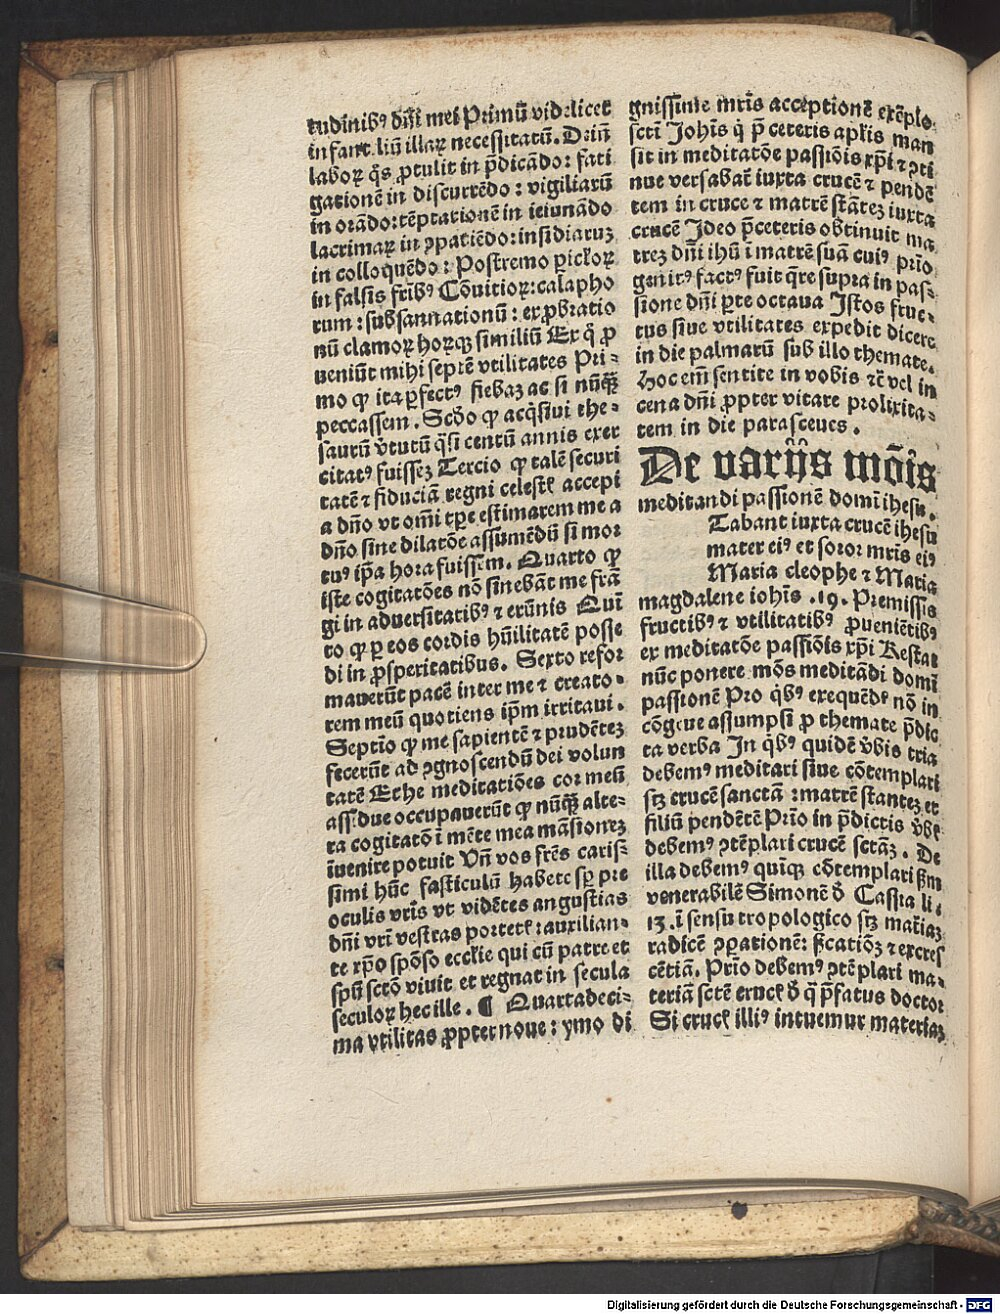 tudinibꝰ dñi mei Primũ videlicet
in fantiliũ illaꝝ necessitatũ. Deiñ
laboꝝ q̃s ꝓtulit in p̃dicãdo: fati
gationẽ in discurrẽdo: vigiliarũ
in orãdo: tẽptationẽ in ieiunãdo
lacrimaꝝ in ꝯpatiẽdo: insidiaruꝫ
in colloquẽdo: Postremo picloꝝ
in falsis fribꝰ Cõuitioꝝ: calapho
rum: subsannationũ: exꝓbratio
nũ clamoꝝ horꝗ similiũ Ex q̃ ꝓ
ueniũt mihi septẽ vtilitates Pri⸗
mo ꝙ ita ꝑfectꝰ fiebaꝫ ac si nũꝗ̃
peccassem. Scḋo ꝙ acq̃siui the⸗
saurũ v̾tutũ q̃si centũ annis exer
citatꝰ fuisseꝫ Tercio ꝙ talẽ securi
tatẽ ⁊ fiduciã regni celestẽ accepi
a dño vt omĩ tꝑe estimarem me a
dño sine dilatõe assumẽdũ si mor
tuꝰ ip̃a hora fuissem. Quarto ꝙ
iste cogitatões nõ sinebãt me frã
gi in aduersitatibꝰ ⁊ erũnis Quĩ
to ꝙ ꝑ eos cordis hũilitatẽ posse
di in ꝓsperitatibus. Sexto refor
mauerũt pacẽ inter me ⁊ creato⸗
rem meũ quotiens ip̃m irritaui.
Septĩo ꝙ me sapientẽ ⁊ prudẽteꝫ
fecerũt ad ꝯgnoscendũ dei volun
tatẽ Et he meditatiões cor meũ
assidue occupauerũt ꝙ nũꝗ̃ alte⸗
ra cogitatõ ĩ mẽte mea mãsioneꝫ
ĩuenire potuit Vñ vos frẽs caris⸗
simi hũc fasticulũ habete sꝑ pre
oculis vr̃is vt vidẽtes angustias
dñi vr̃i vestras portetẽ: auxilian⸗
te xp̃o spõso eccl̃ie qui cũ patre et
spũ sctõ viuit et regnat in secula
seculoꝝ hec ille. ¶ Quartadeci⸗
ma vtilitas ꝓpter noue: ymo di
gnissime mr̃is acceptionẽ exẽplo
scti Joh̃is q̃ p̃ ceteris apl̃is man
sit in meditatõe passiõis xp̃i ⁊ ꝯti
nue versabat̃ iuxta crucẽ ⁊ pendẽ
tem in cruce ⁊ matrẽ stãteꝫ iuxta
crucẽ Ideo p̃ceteris obtinuit ma
treꝫ dñi ih̃u ĩ matrẽ suã cuiꝰ prĩo
genitꝰ factꝰ fuit q̃re supra in pas⸗
sione dñi ꝑte octaua Istos fruc⸗
tus siue vtilitates expedit dicere
in die palmarũ sub illo themate.
Hoc em̃ sentite in vobis ⁊c̃ vel in
cena dñi ꝓpter vitare prolixita⸗
tem in die parasceues.
De varijs mõis
meditandi passionẽ domĩ ihesu.
Tabant iuxta crucẽ ihesu
mater eiꝰ et soror mr̃is eiꝰ
Maria cleophe ⁊ Maria
magdalene ioh̃is .19. Premissis
fructibꝰ ⁊ vtilitatibꝰ ꝓueniẽtibꝰ
ex meditatõe passiõis xp̃i Restat
nũc ponere mõs meditãdi domĩ
passionẽ Pro q̃bꝰ exequẽdẽ nõ in
cõgrue assumpsi ꝓ themate p̃dic
ta verba In q̃bꝰ quidẽ v̾bis tria
debemꝰ meditari siue cõtemplari
sꝫ crucẽ sanctã: matrẽ stanteꝫ et
filiũ pendẽtẽ Prĩo in p̃dictis v̾bẽ
debemꝰ ꝯtẽplari crucẽ sctãꝫ. De
illa debemꝰ quĩqꝫ cõtemplari ẜm
venerabilẽ Simonẽ ð Cassia li.
13. ĩ sensu tropologico sꝫ mat̃iaꝫ
radicẽ ꝯꝑationẽ: fr̃catiõꝫ ⁊ excres
cẽtiã. Prĩo debemꝰ ꝯtẽplari ma⸗
teriã sctẽ crucẽ ð q̃ p̃fatus doctor
Si crucẽ illiꝰ intuemur materiaꝫ
Digitalisierung gefördert durch die Deutsche Forschungsgemeinschaft - DFG